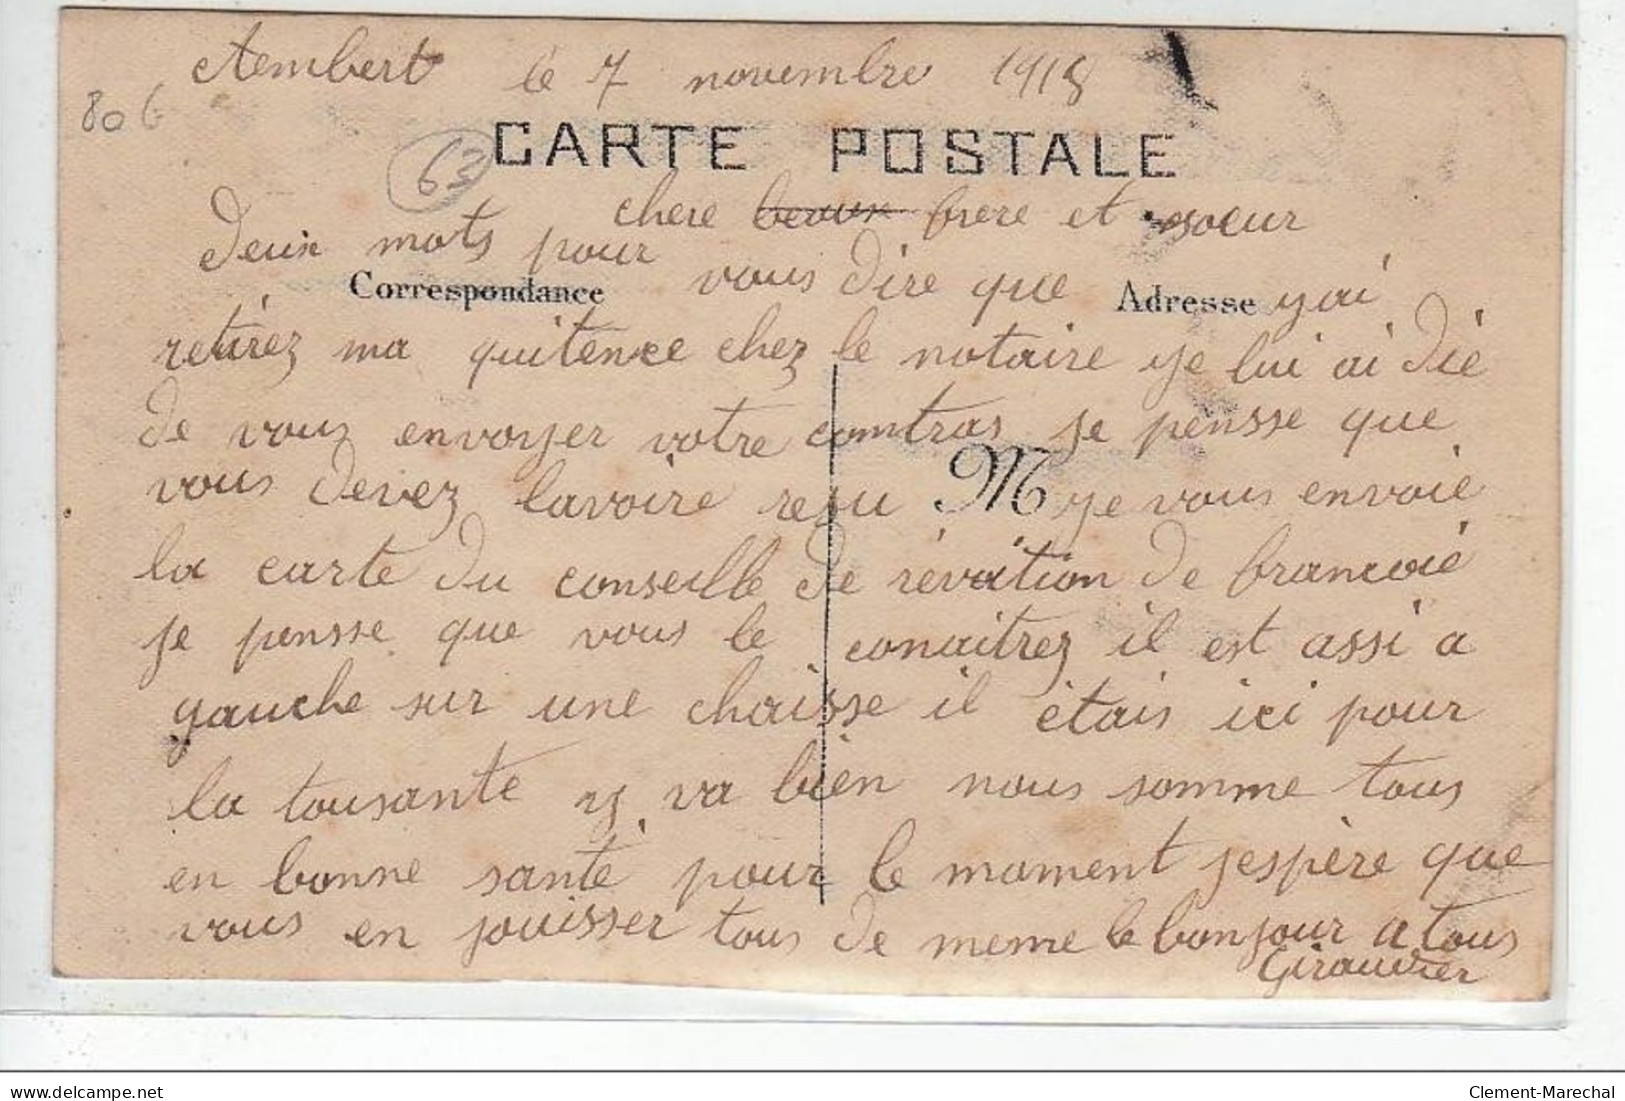 Aembert le 7 novembre 1918
806
63
CARTE POSTALE
chere beaux frere et soeur
Deux mots pour vous dire que y ai
Correspondance
Adresse
retirez ma quitence chez le notaire ye lui ai die
de vouz envoyer votre comtras je pensse que
vous devez lavoire resu M ye vous envoie
la carte du conseille de révition de francoie
je pensse que vous le conaitrez il est assi a
gauche sur une chaisse il étais ici pour
la tousante ys va bien nous somme tous
en bonne santé pour le moment jespère que
vous en jouisser tous de meme le bonjour a tous
Giraudier
delcampe.net
Clement-Marechal